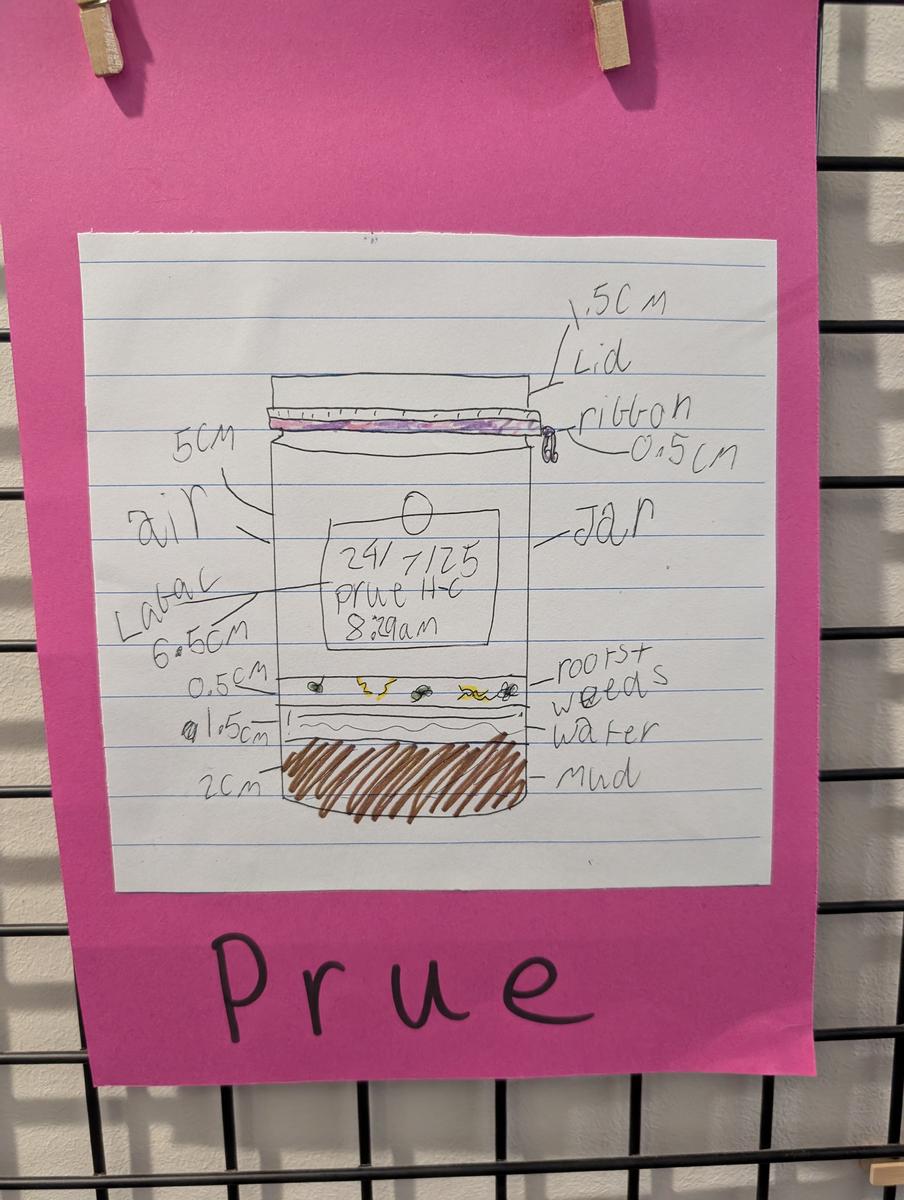 1.5cm
Lid
ribbon
0.5cm
5cm
air
Jar
24/7/25
prue H-C
8:29am
Labal
6.5cm
0.5cm
roots+
weeds
1.5cm
water
2cm
Mud
Prue